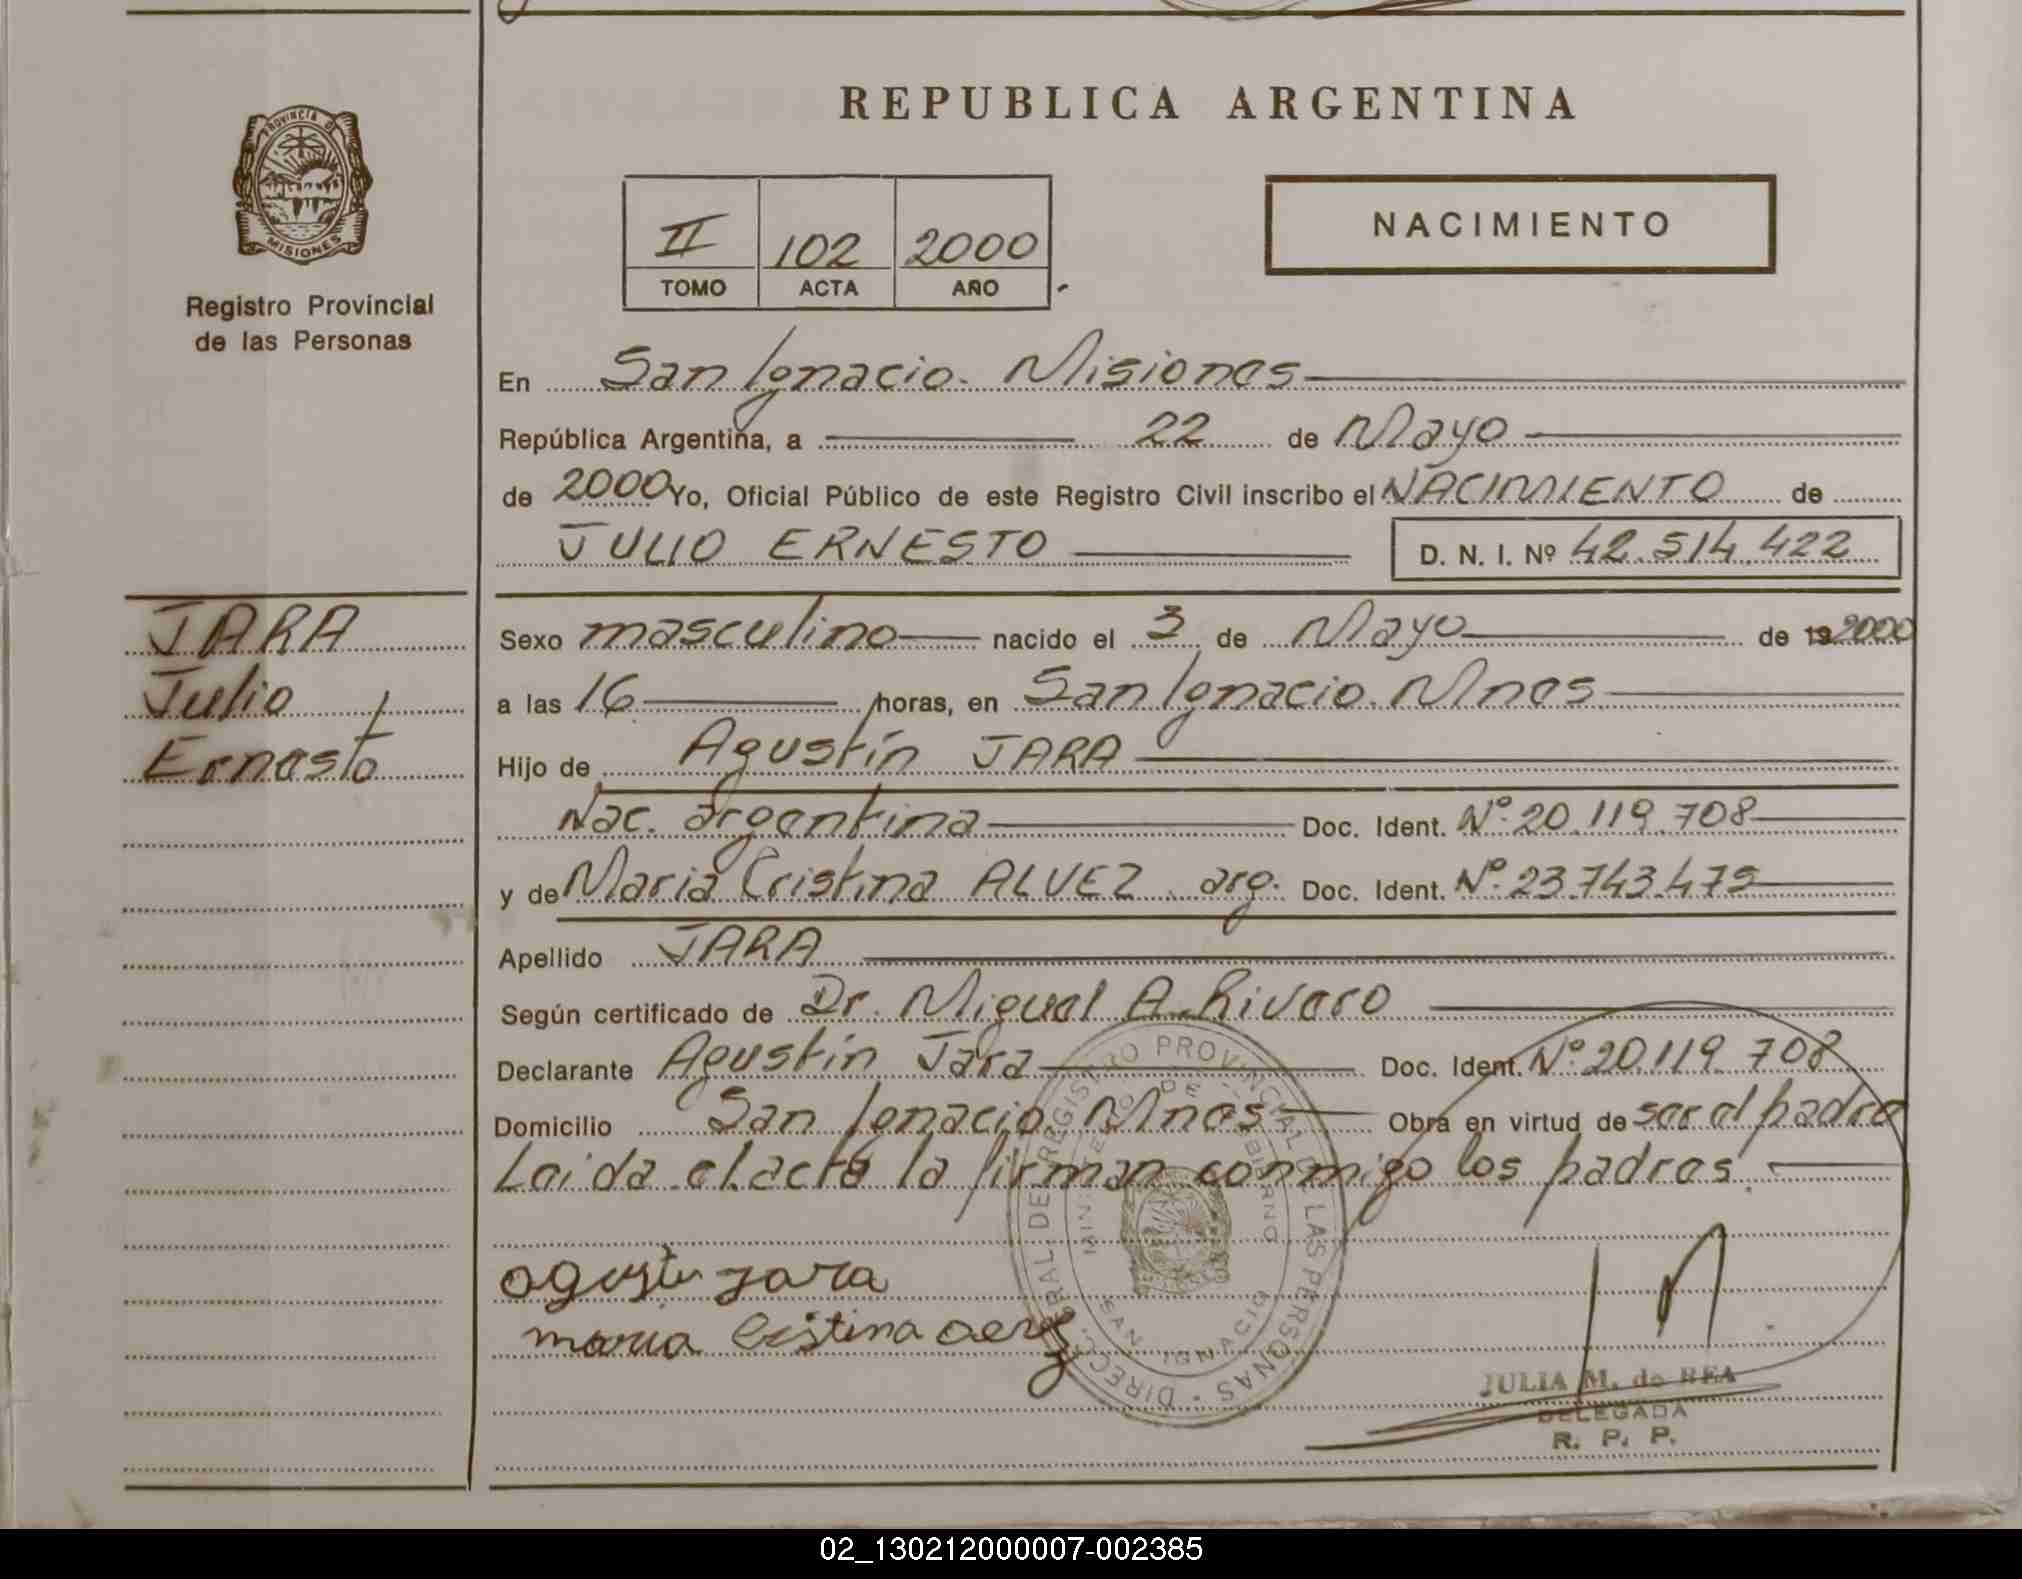 REPUBLICA ARGENTINA
PROVINCIA D
MISIONES
Registro Provincial
de las Personas
II 102 2000
TOMO ACTA AÑO
NACIMIENTO
En San Ignacio. Misiones
República Argentina, a 22 de Mayo
de 2000 Yo, Oficial Público de este Registro Civil inscribo el NACIMIENTO de
JULIO ERNESTO D. N. I. Nº 42.514.422
JARA
Julio
Ernesto
Sexo masculino nacido el 3 de Mayo de 19 2000
a las 16 horas, en San Ignacio. Mnes
Hijo de Agustín JARA
Nac. argentina Doc. Ident. Nº 20.119.708
y de Maria Cristina ALVEZ. arg. Doc. Ident. Nº 23.743.479
Apellido JARA
Según certificado de Dr. Miguel A. Rivero
Declarante Agustín Jara Doc. Ident. Nº 20.119.708
Domicilio San Ignacio. Mnes Obra en virtud de ser el padre
Leida el acta la firman conmigo los padres.
agustin jara
maria Cristina
DIREC. GRAL. DE REGISTRO PROVINCIAL DE LAS PERSONAS
MINISTERIO DE GOBIERNO
SAN IGNACIO
JULIA M. de REA
DELEGADA
R. P. P.
02_130212000007-002385